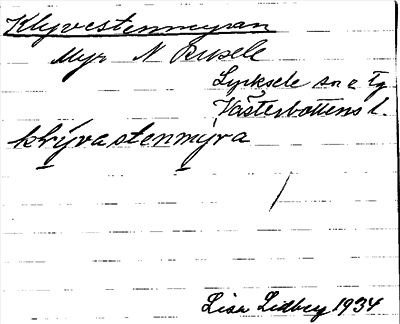 Klyvestenmyran
Myr N Rusele
Lycksele sn o Tg
Västerbottens l.
klyvastenmyra
/
Lisa Lidberg 1934